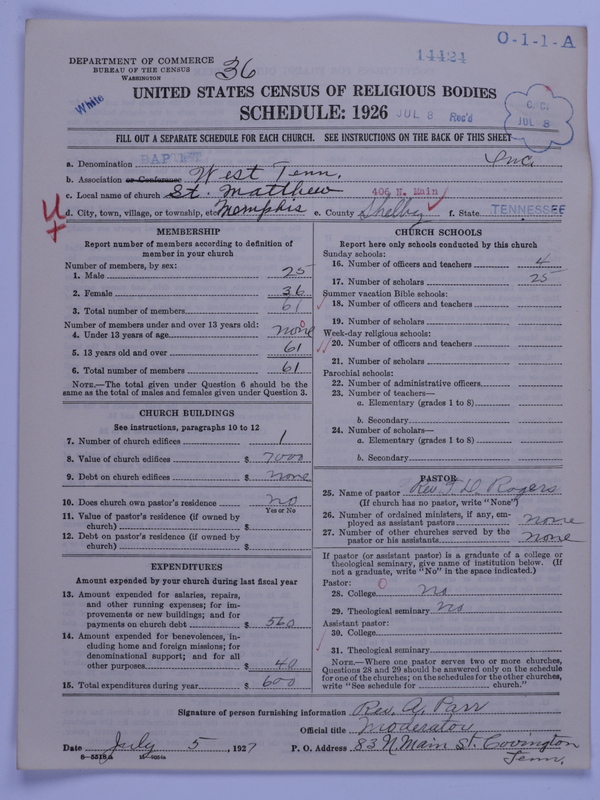 O-1-1-A
14424
DEPARTMENT OF COMMERCE
BUREAU OF THE CENSUS
WASHINGTON
36
White
UNITED STATES CENSUS OF RELIGIOUS BODIES
SCHEDULE: 1926
JUL 8 Rec'd
JUL 8
FILL OUT A SEPARATE SCHEDULE FOR EACH CHURCH. SEE INSTRUCTIONS ON THE BACK OF THIS SHEET
a. Denomination BAPTIST Inc.
b. Association or Conference West Tenn.
c. Local name of church St. Matthew 406 N. Main
d. City, town, village, or township, etc. Memphis e. County Shelby f. State TENNESSEE
MEMBERSHIP
Report number of members according to definition of
member in your church
Number of members, by sex:
1. Male 25
2. Female 36
3. Total number of members 61
Number of members under and over 13 years old:
4. Under 13 years of age none
5. 13 years old and over 61
6. Total number of members 61
NOTE.—The total given under Question 6 should be
same as the total of males and females given under Question 3.
CHURCH BUILDINGS
See instructions, paragraphs 10 to 12
7. Number of church edifices 1
8. Value of church edifices $ 7000
9. Debt on church edifices $ none
10. Does church own pastor's residence no
Yes or No
11. Value of pastor's residence (if owned by
church) $
12. Debt on pastor's residence (if owned by
church) $
EXPENDITURES
Amount expended by your church during last fiscal year
13. Amount expended for salaries, repairs,
and other running expenses; for im-
provements or new buildings; and for
payments on church debt $ 560
14. Amount expended for benevolences, in-
cluding home and foreign missions; for
denominational support; and for all
other purposes $ 40
15. Total expenditures during year $ 600
CHURCH SCHOOLS
Report here only schools conducted by this church
Sunday schools:
16. Number of officers and teachers 4
17. Number of scholars 25
Summer vacation Bible schools:
18. Number of officers and teachers
19. Number of scholars
Week-day religious schools:
20. Number of officers and teachers
21. Number of scholars
Parochial schools:
22. Number of administrative officers
23. Number of teachers—
a. Elementary (grades 1 to 8)
b. Secondary
24. Number of scholars—
a. Elementary (grades 1 to 8)
b. Secondary
PASTOR
25. Name of pastor Rev. T. D. Rogers
(If church has no pastor, write "None")
26. Number of ordained ministers, if any, em-
ployed as assistant pastors none
27. Number of other churches served by the
pastor or his assistants none
If pastor (or assistant pastor) is a graduate of a college or
theological seminary, give name of institution below. (If
not a graduate, write "No" in the space indicated.)
Pastor:
28. College no
29. Theological seminary no
Assistant pastor:
30. College
31. Theological seminary
NOTE.—Where one pastor serves two or more churches,
Questions 28 and 29 should be answered only on the schedule
for one of the churches; on the schedules for the other churches,
write "See schedule for church."
Signature of person furnishing information Rev. A. Parr
Official title Moderator
Date July 5, 1927 P. O. Address 83 N. Main St. Covington
Tenn.
8-5518a